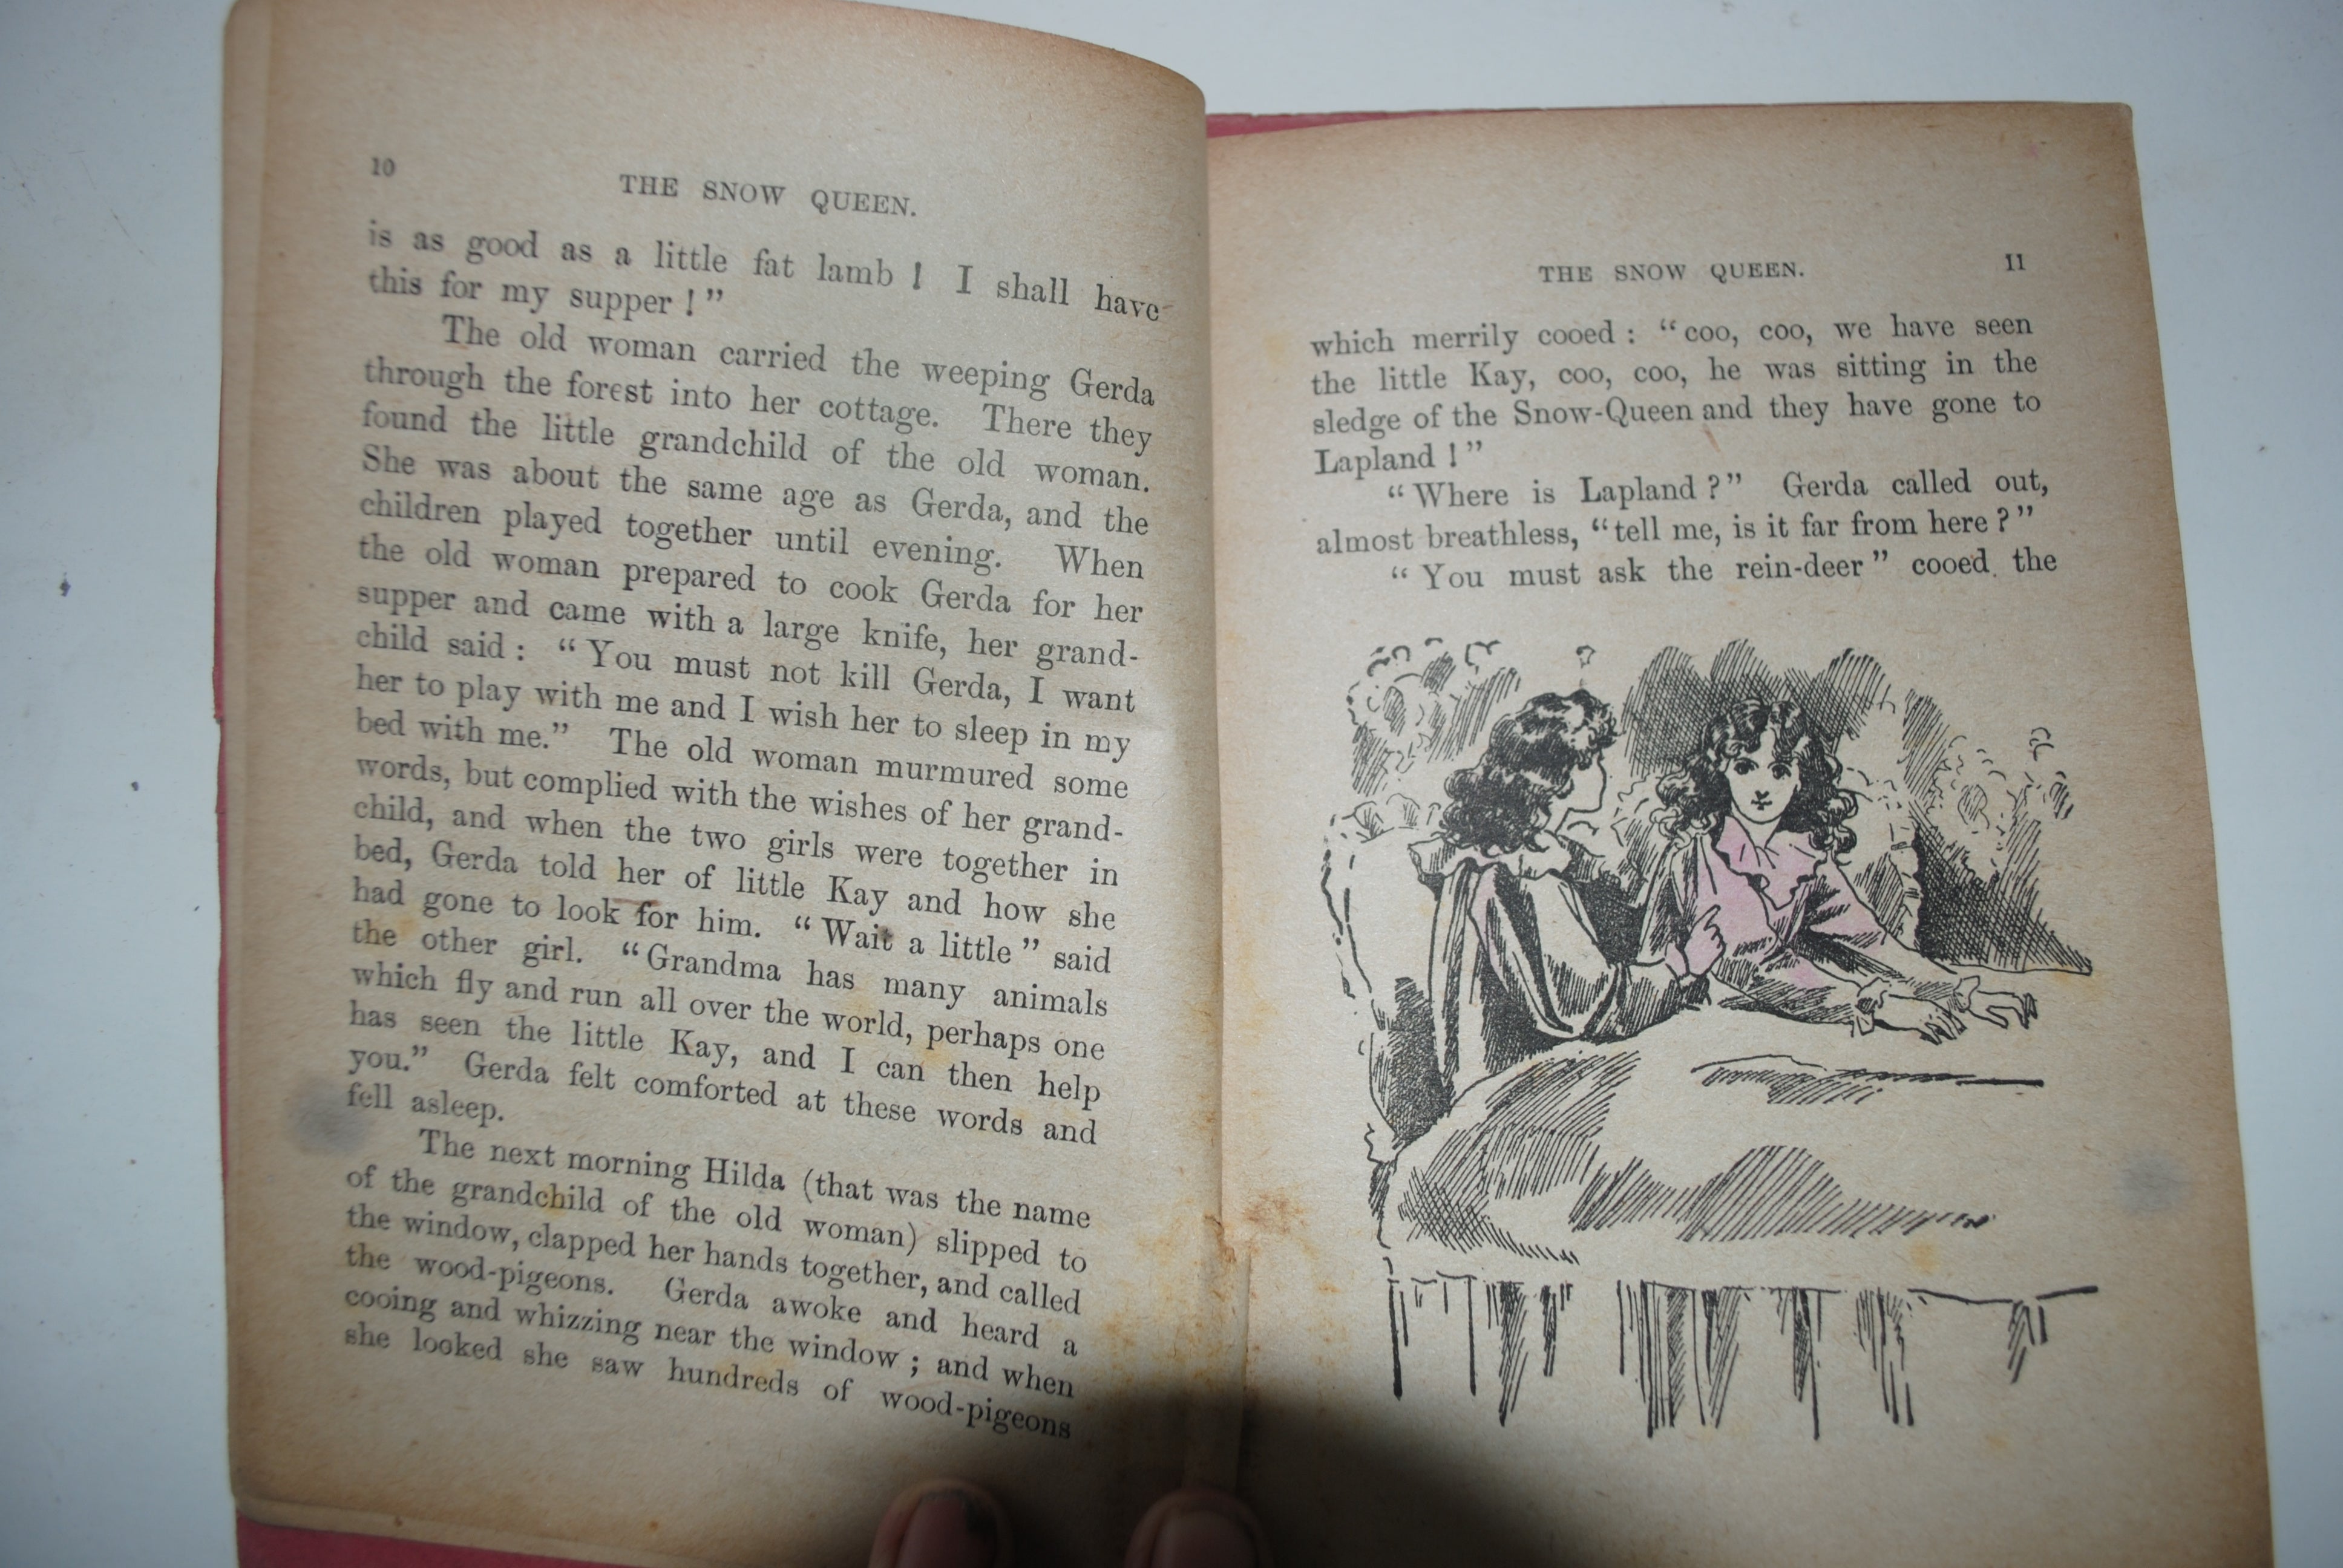 10
THE SNOW QUEEN.
is as good as a little fat lamb ! I shall have
this for my supper ! ”
The old woman carried the weeping Gerda
through the forest into her cottage. There they
found the little grandchild of the old woman.
She was about the same age as Gerda, and the
children played together until evening. When
the old woman prepared to cook Gerda for her
supper and came with a large knife, her grand-
child said : “ You must not kill Gerda, I want
her to play with me and I wish her to sleep in my
bed with me.” The old woman murmured some
words, but complied with the wishes of her grand-
child, and when the two girls were together in
bed, Gerda told her of little Kay and how she
had gone to look for him. “ Wait a little ” said
the other girl. “ Grandma has many animals
which fly and run all over the world, perhaps one
has seen the little Kay, and I can then help
you.” Gerda felt comforted at these words and
fell asleep.
The next morning Hilda (that was the name
of the grandchild of the old woman) slipped to
the window, clapped her hands together, and called
the wood-pigeons. Gerda awoke and heard a
cooing and whizzing near the window ; and when
she looked she saw hundreds of wood-pigeons
THE SNOW QUEEN.
11
which merrily cooed : “ coo, coo, we have seen
the little Kay, coo, coo, he was sitting in the
sledge of the Snow-Queen and they have gone to
Lapland ! ”
“ Where is Lapland ? ” Gerda called out,
almost breathless, “ tell me, is it far from here ? ”
“ You must ask the rein-deer ” cooed the